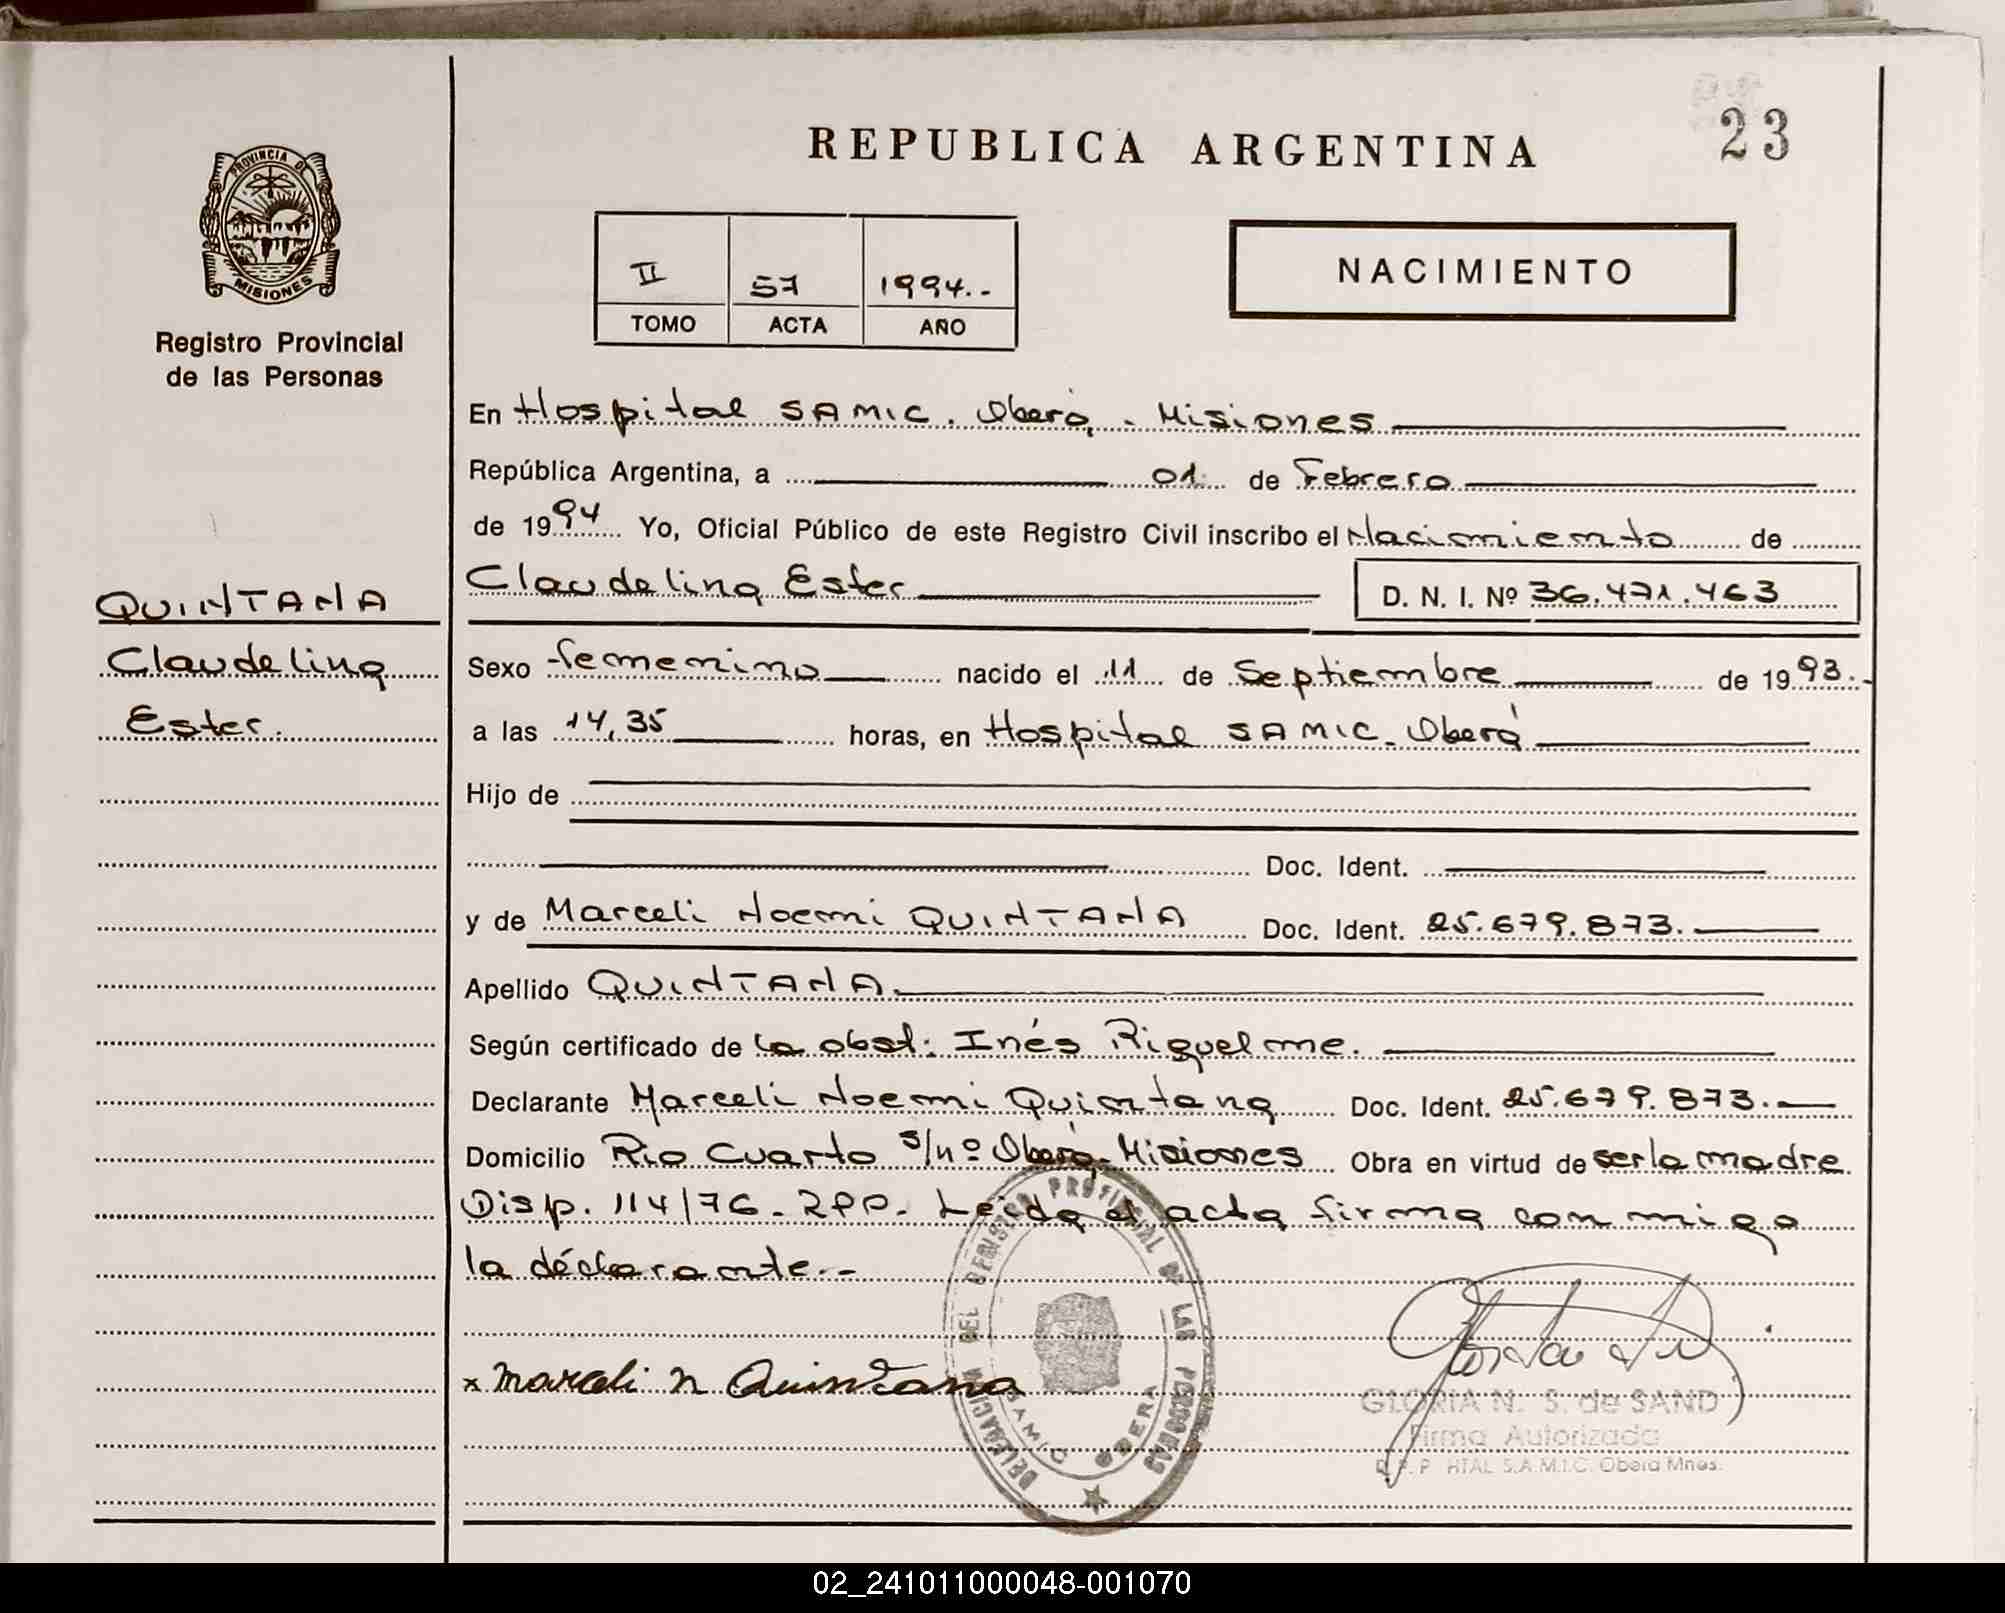 REPUBLICA ARGENTINA
23
PROVINCIA DE
MISIONES
Registro Provincial
de las Personas
II 57 1994.-
TOMO ACTA AÑO
NACIMIENTO
En Hospital SAMIC. Oberá. - Misiones
República Argentina, a 01 de Febrero
de 1994 Yo, Oficial Público de este Registro Civil inscribo el Nacimiento de
Claudelina Ester D. N. I. Nº 36.471.463
QUINTANA
Claudelina
Ester.
Sexo femenino nacido el 11 de Septiembre de 1993.-
a las 14,35 horas, en Hospital SAMIC. Oberá
Hijo de
Doc. Ident.
y de Marceli Noemi QUINTANA Doc. Ident. 25.679.873.
Apellido QUINTANA.
Según certificado de la obst: Inés Riquelme.
Declarante Marceli Noemi Quintana Doc. Ident. 25.679.873.-
Domicilio Rio Cuarto s/nº Oberá-Misiones Obra en virtud de ser la madre
Disp. 114/76- RPP. Leida el acta firma conmigo
la déclarante.-
x Marceli N Quintana
DELEGACION DEL REGISTRO PROVINCIAL DE LAS PERSONAS
OBERA
GLORIA N. S. de SAND
Firma Autorizada
R.P.P HTAL S.A.M.I.C. Oberá Mnes.
02_241011000048-001070